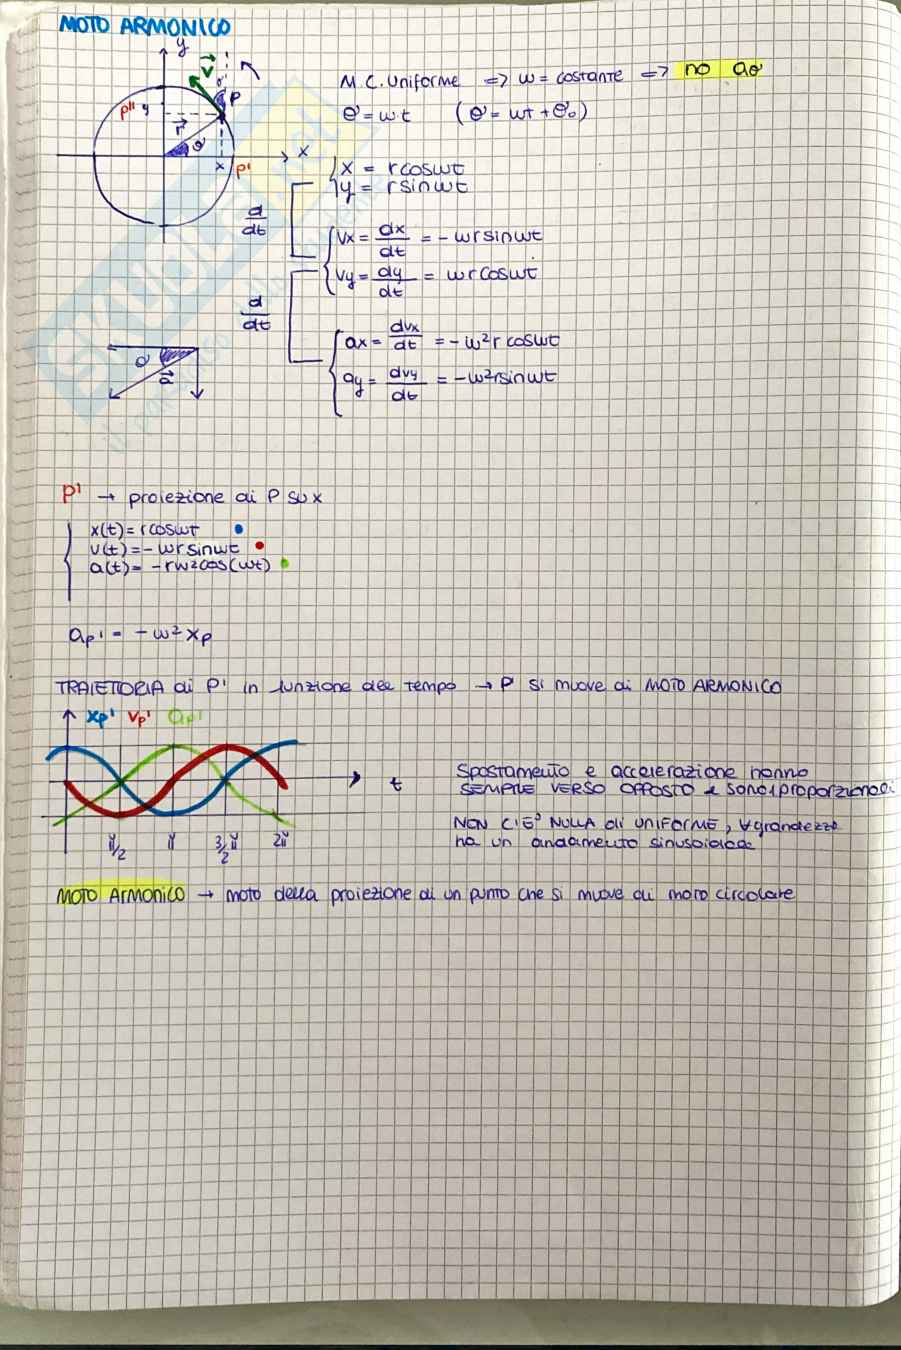 MOTO ARMONICO
y
V
θ
P
P'' y
r
θ
x
x P'
M.C. Uniforme => ω = costante => no aθ
θ = ωt (θ = ωt + θ₀)
x = rcosωt
y = rsinωt
d/dt
Vx = dx/dt = -ωrsinωt
Vy = dy/dt = ωrcosωt
d/dt
ax = dvx/dt = -ω²r cosωt
ay = dvy/dt = -ω²rsinωt
θ
a
P' → proiezione di P su x
x(t) = rcosωt
v(t) = -ωrsinωt
a(t) = -rω²cos(ωt)
aP' = -ω² xP
TRAIETTORIA di P' in funzione del tempo → P' si muove di MOTO ARMONICO
xP' VP' aP'
t
π/2 π 3/2π 2π
Spostamento e accelerazione hanno
SEMPRE VERSO OPPOSTO e sono proporzionali
NON C'E' NULLA di UNIFORME, ∀ grandezza
ha un andamento sinusoidale
MOTO ARMONICO → moto della proiezione di un punto che si muove di moto circolare
SKUOLA.net